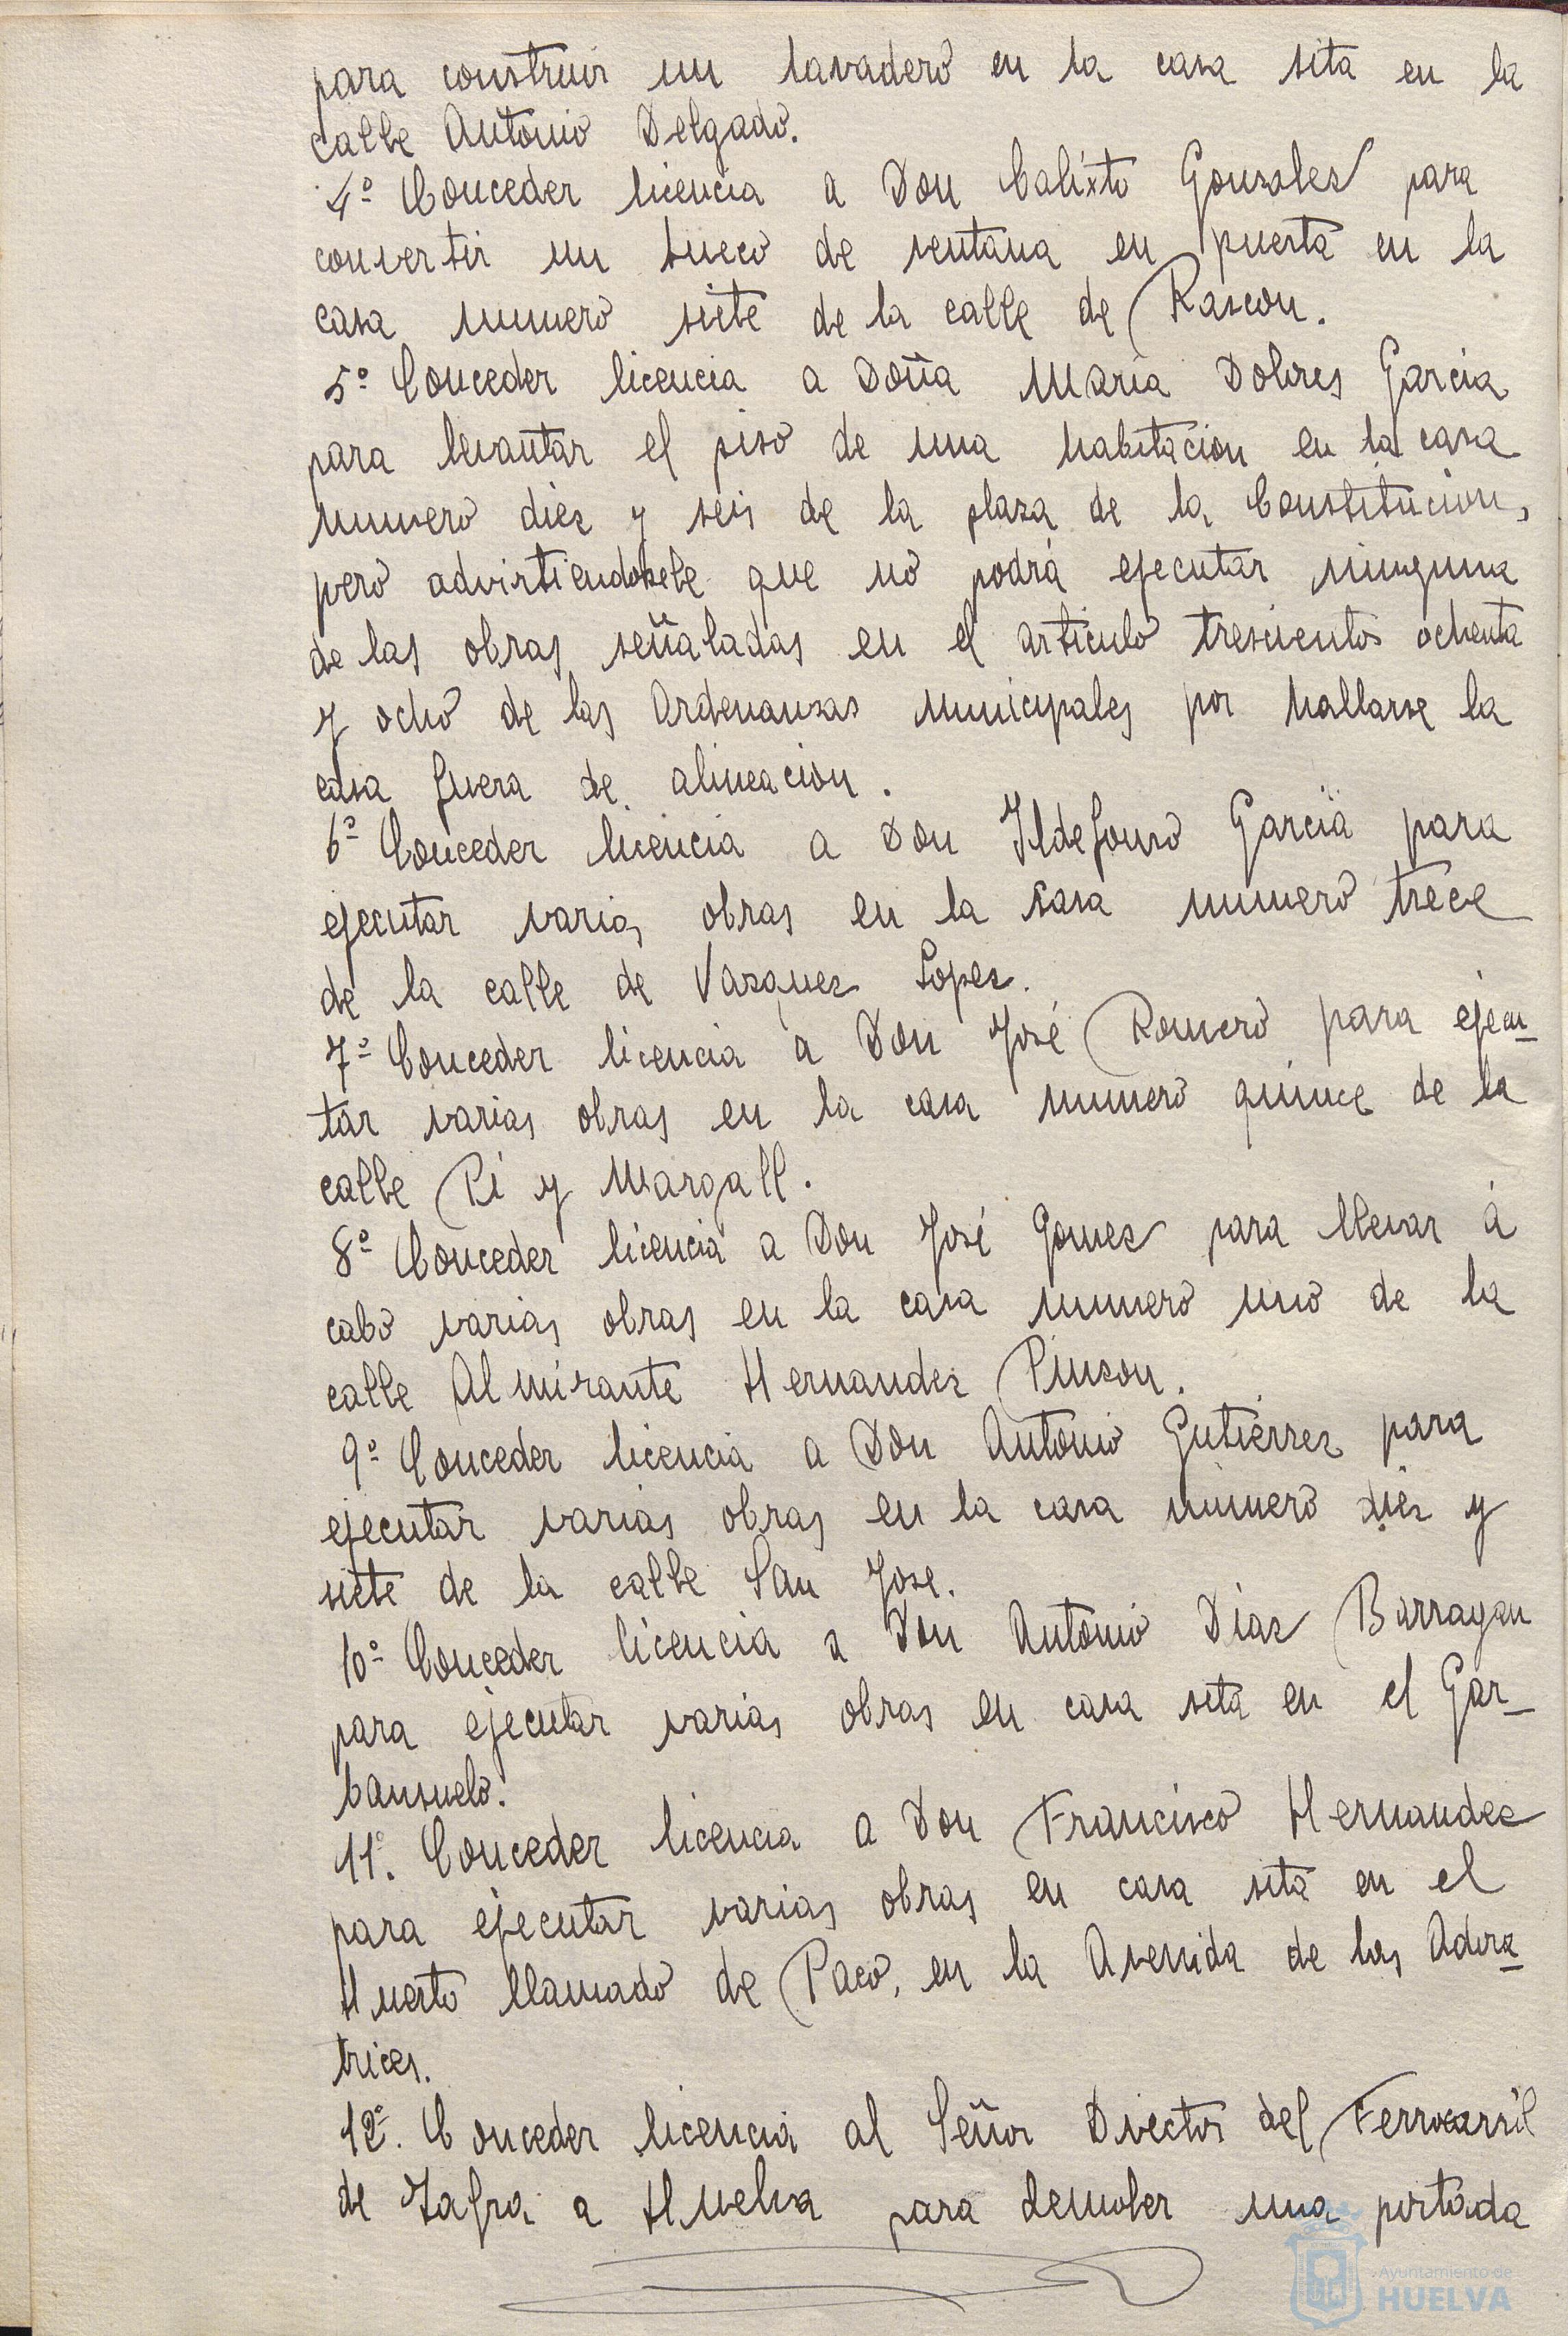 para construir un lavadero en la casa sita en la
calle Antonio Delgado.
4º Conceder licencia a Don Calixto Gonzalez para
convertir un hueco de ventana en puerta en la
casa numero siete de la calle de Rascon.
5º Conceder licencia a Doña Maria Dolores Garcia
para levantar el piso de una habitacion en la casa
numero diez y seis de la plaza de la Constitucion,
pero advirtiendosele que no podrá ejecutar ninguna
de las obras señaladas en el articulo trescientos ochenta
y ocho de las Ordenanzas municipales por hallarse la
casa fuera de alineacion.
6º Conceder licencia a Don Ildefonso Garcia para
ejecutar varias obras en la casa numero trece
de la calle de Vazquez Lopez.
7º Conceder licencia a Don José Romero para ejecu-
tar varias obras en la casa numero quince de la
calle Pi y Margall.
8º Conceder licencia a Don José Gomez para llevar á
cabo varias obras en la casa numero uno de la
calle Almirante Hernandez Pinzon.
9º Conceder licencia a Don Antonio Gutierrez para
ejecutar varias obras en la casa numero diez y
siete de la calle San Jose.
10º Conceder licencia a Don Antonio Diaz Barragan
para ejecutar varias obras en casa sita en el Gar-
banzuelo.
11º. Conceder licencia a Don Francisco Hernandez
para ejecutar varias obras en casa sita en el
Huerto llamado de Paco, en la Avenida de las Adora-
trices.
12º. Conceder licencia al Señor Director del Ferrocarril
de Zafra a Huelva para demoler una portada
Ayuntamiento de
HUELVA